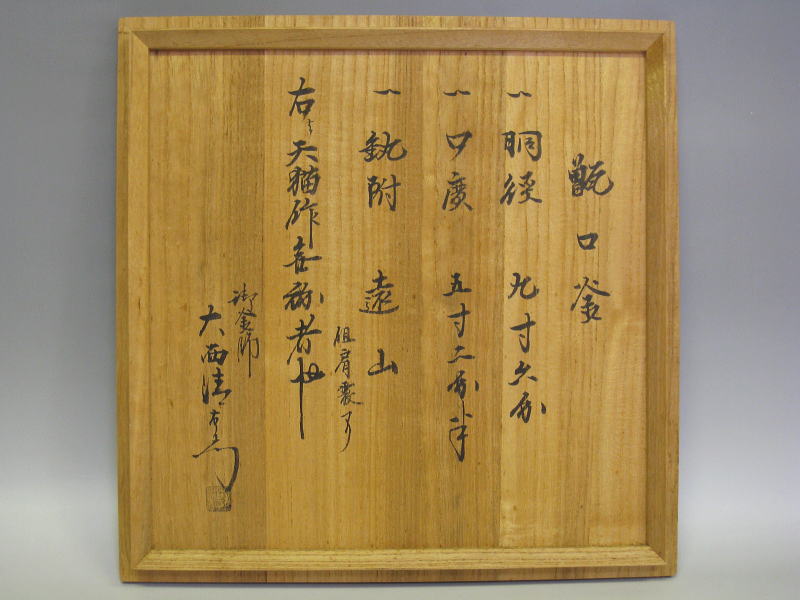 甑口釜
一 胴径 九寸六分
一 口廣 五寸二分半
一 鈧附 遠山
但肩霰アリ
右ハ天猫作無紛者也
御釜師
大西清右衛門